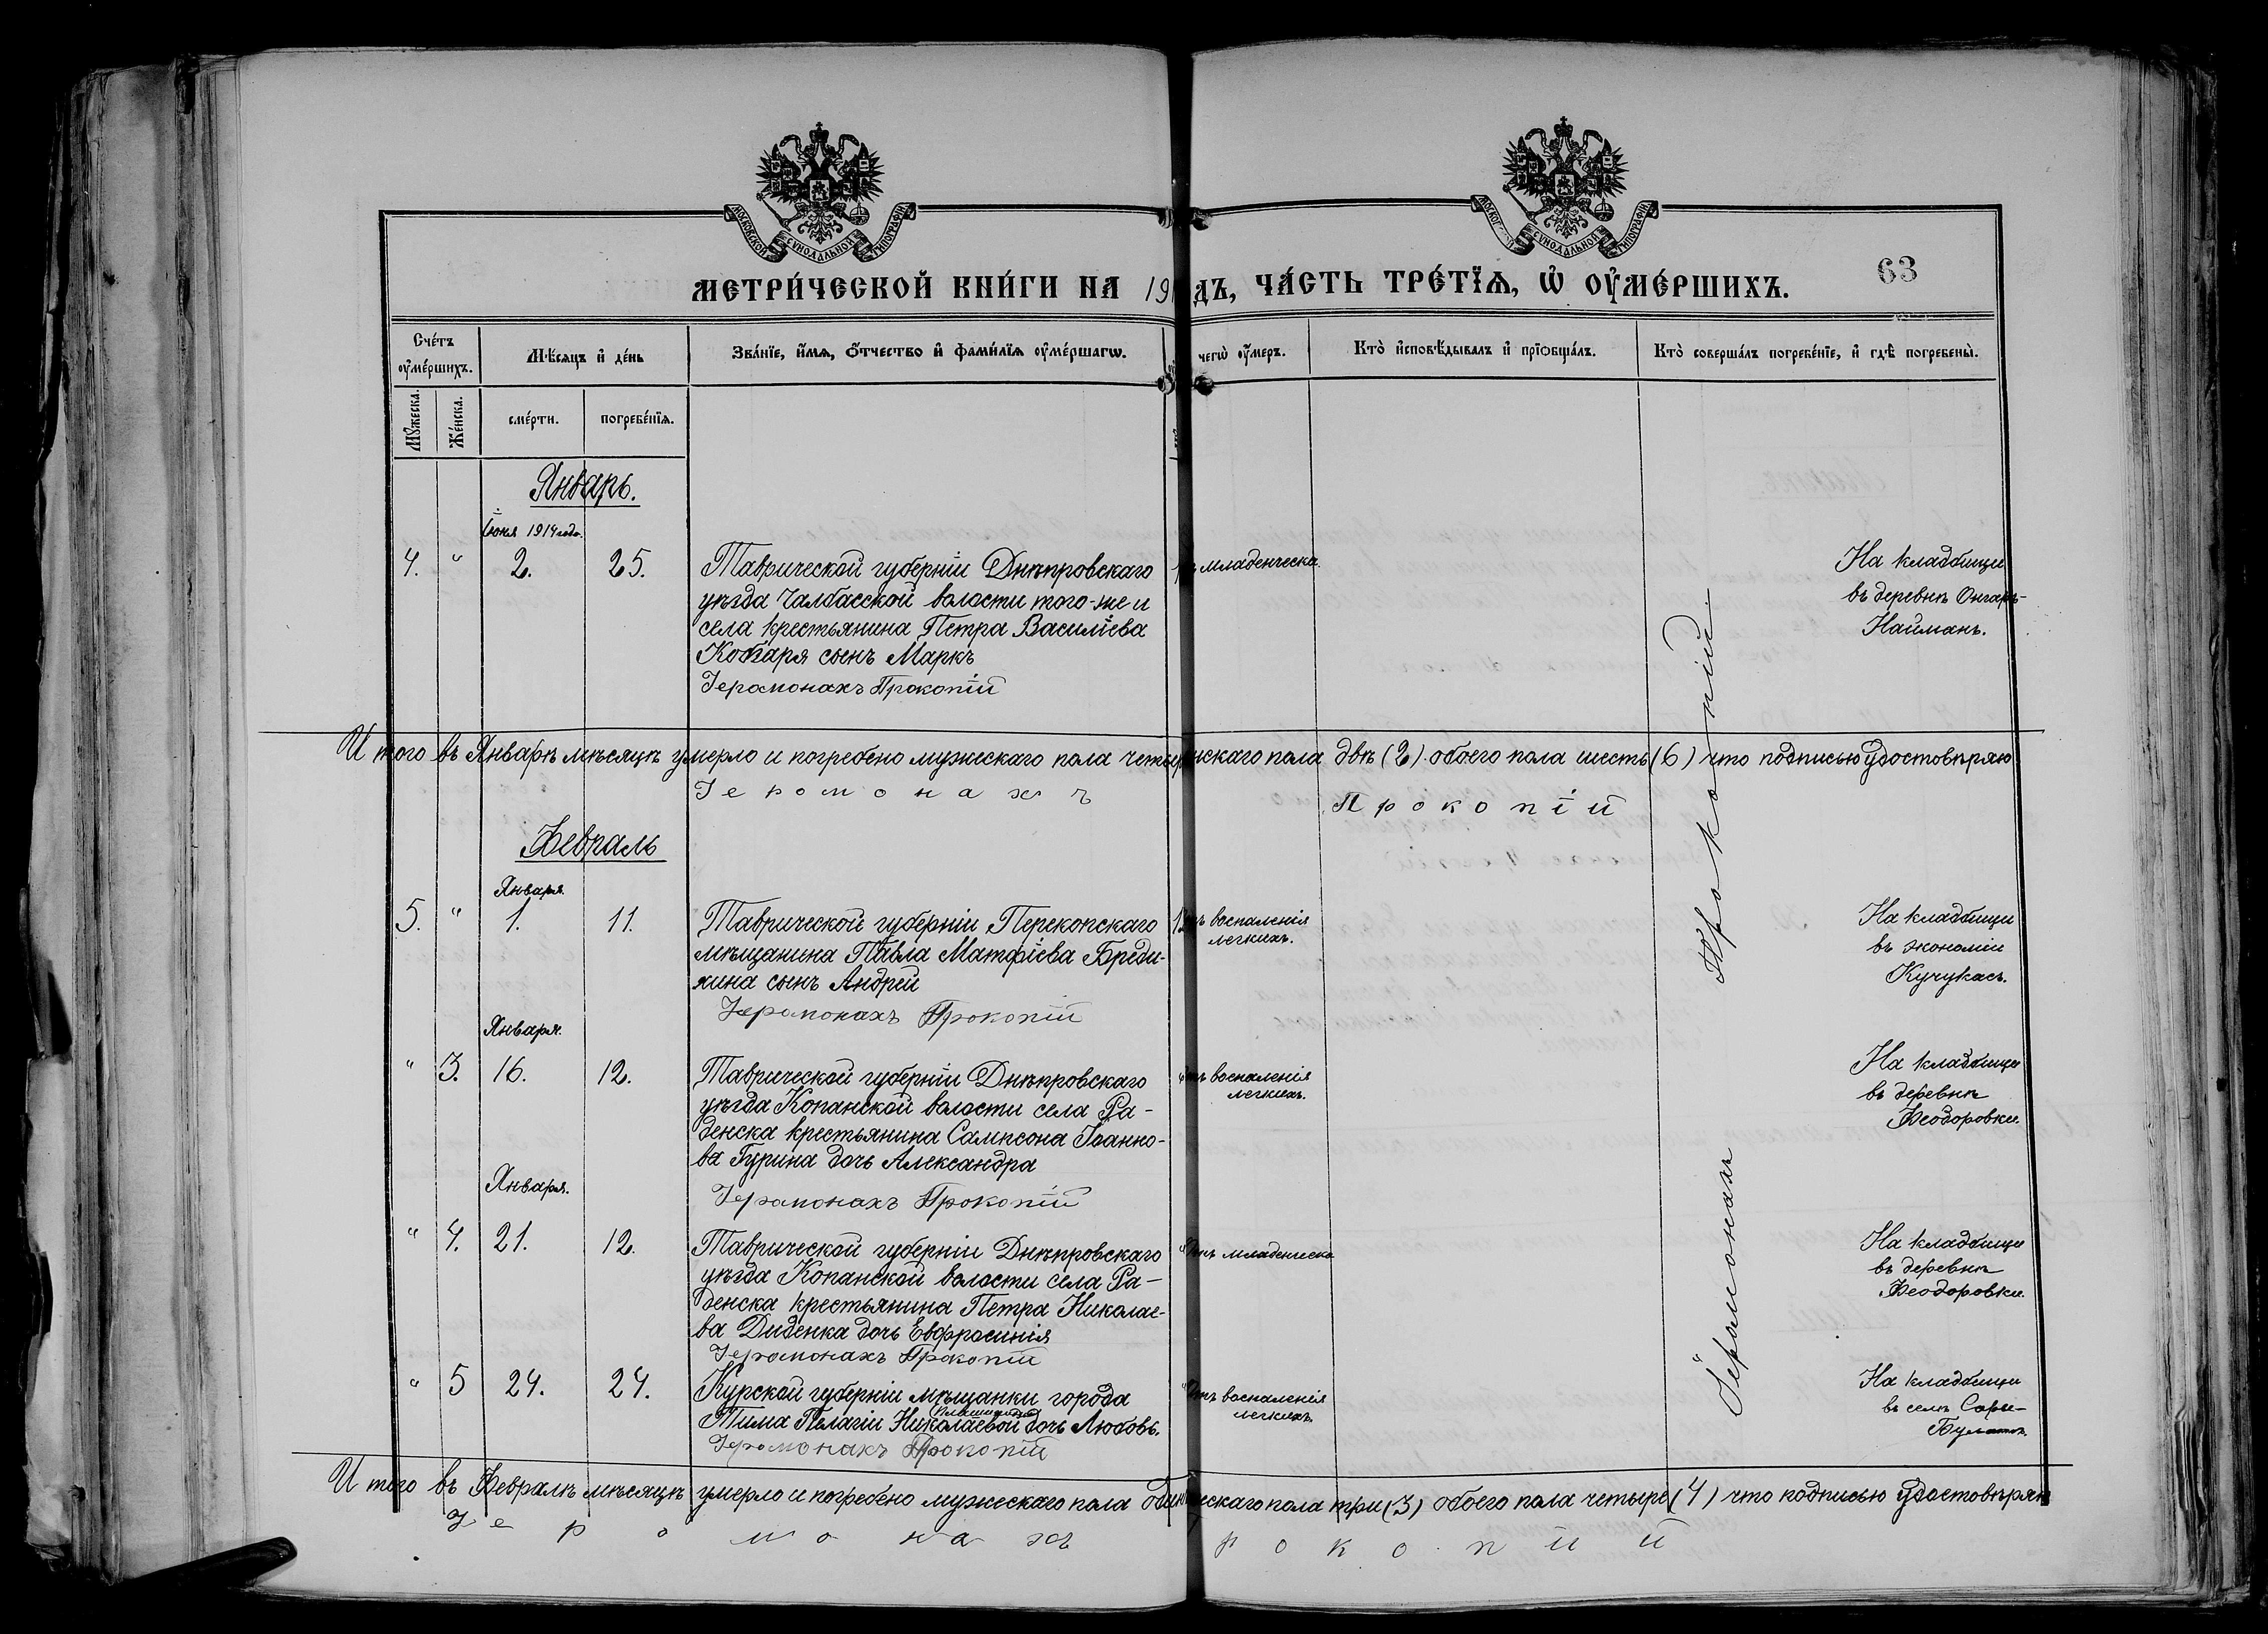 МОСКОВСКОЙ СУНОДАЛЬНОЙ ТИПОГРАФІИ
МОСКОВ СУНОДАЛЬНОЙ ТИПОГРАФІИ
МЕТРИ́ЧЕСКОЙ КНИ́ГИ НА 191 ДЪ, ЧА́СТЬ ТРЕ́ТЇѦ, Ѡ҆ ОУ҆МЕ́РШИХЪ.
63
Сче́тъ оу҆ме́ршихъ.
Мѣ́сяцъ и҆ де́нь
Зва́нїе, и҆́мѧ, ѻ҆́тчество и҆ фами́лїѧ оу҆ме́ршагѡ.
чегѡ̀ оу҆́меръ.
Кто̀ и҆сповѣ́дывалъ и҆ прїѻбща́лъ.
Кто̀ соверша́лъ погребе́нїе, и҆ гдѣ̀ погребены̀.
Му́жеска.
Же́нска.
сме́рти.
погребе́нїѧ.
Январь.
Іюня 1914 года.
4. " 2. 25. Таврической губерніи Днѣпровскаго
уѣзда Чалбасской волости того-же и
села крестьянина Петра Василіева
Кобзаря сынъ Маркъ
Іеромонахъ Прокопій
младенческа.
На кладбищи
въ деревнѣ Онгаръ-
Найманъ.
И того въ Январѣ мѣсяцѣ умерло и погребено мужескаго пола четыр нскаго пола двѣ (2) обоего пола шесть (6) что подписью удостовѣряю
Іеромонахъ Прокопій
Февраль
Января.
5. " 1. 11. Таврической губерніи Перекопскаго
мѣщанина Павла Матфіева Бреди-
хина сынъ Андрей
Іеромонахъ Прокопій
ъ воспаленія
легкихъ.
На кладбищи
въ экономіи
Кучукасъ.
Января.
" 3. 16. 12. Таврической губерніи Днѣпровскаго
уѣзда Копанской волости села Ра-
денска крестьянина Сампсона Іоанно-
ва Гурина дочь Александра
Іеромонахъ Прокопій
тъ воспаленія
легкихъ.
На кладбищи
въ деревнѣ
Феодоровки.
Января.
" 4. 21. 12. Таврической губерніи Днѣпровскаго
уѣзда Копанской волости села Ра-
денска крестьянина Петра Николае-
ва Диденка дочь Евфросинія
Іеромонахъ Прокопій
Отъ младенческа
На кладбищи
въ деревнѣ
Феодоровки.
" 5 24. 24. Курской губерніи мѣщанки города
Тима Пелагіи Николаевой дочь Любовь.
Іеромонахъ Прокопій
Отъ воспаленія
легкихъ
На кладбищи
въ селѣ Сары-
Булатъ.
Іеромонахъ Прокопій.
И того въ Февралѣ мѣсяцѣ умерло и погребено мужескаго пола один нскаго пола три (3) обоего пола четыре (4) что подписью удостовѣряю
Іеромонахъ рокопий